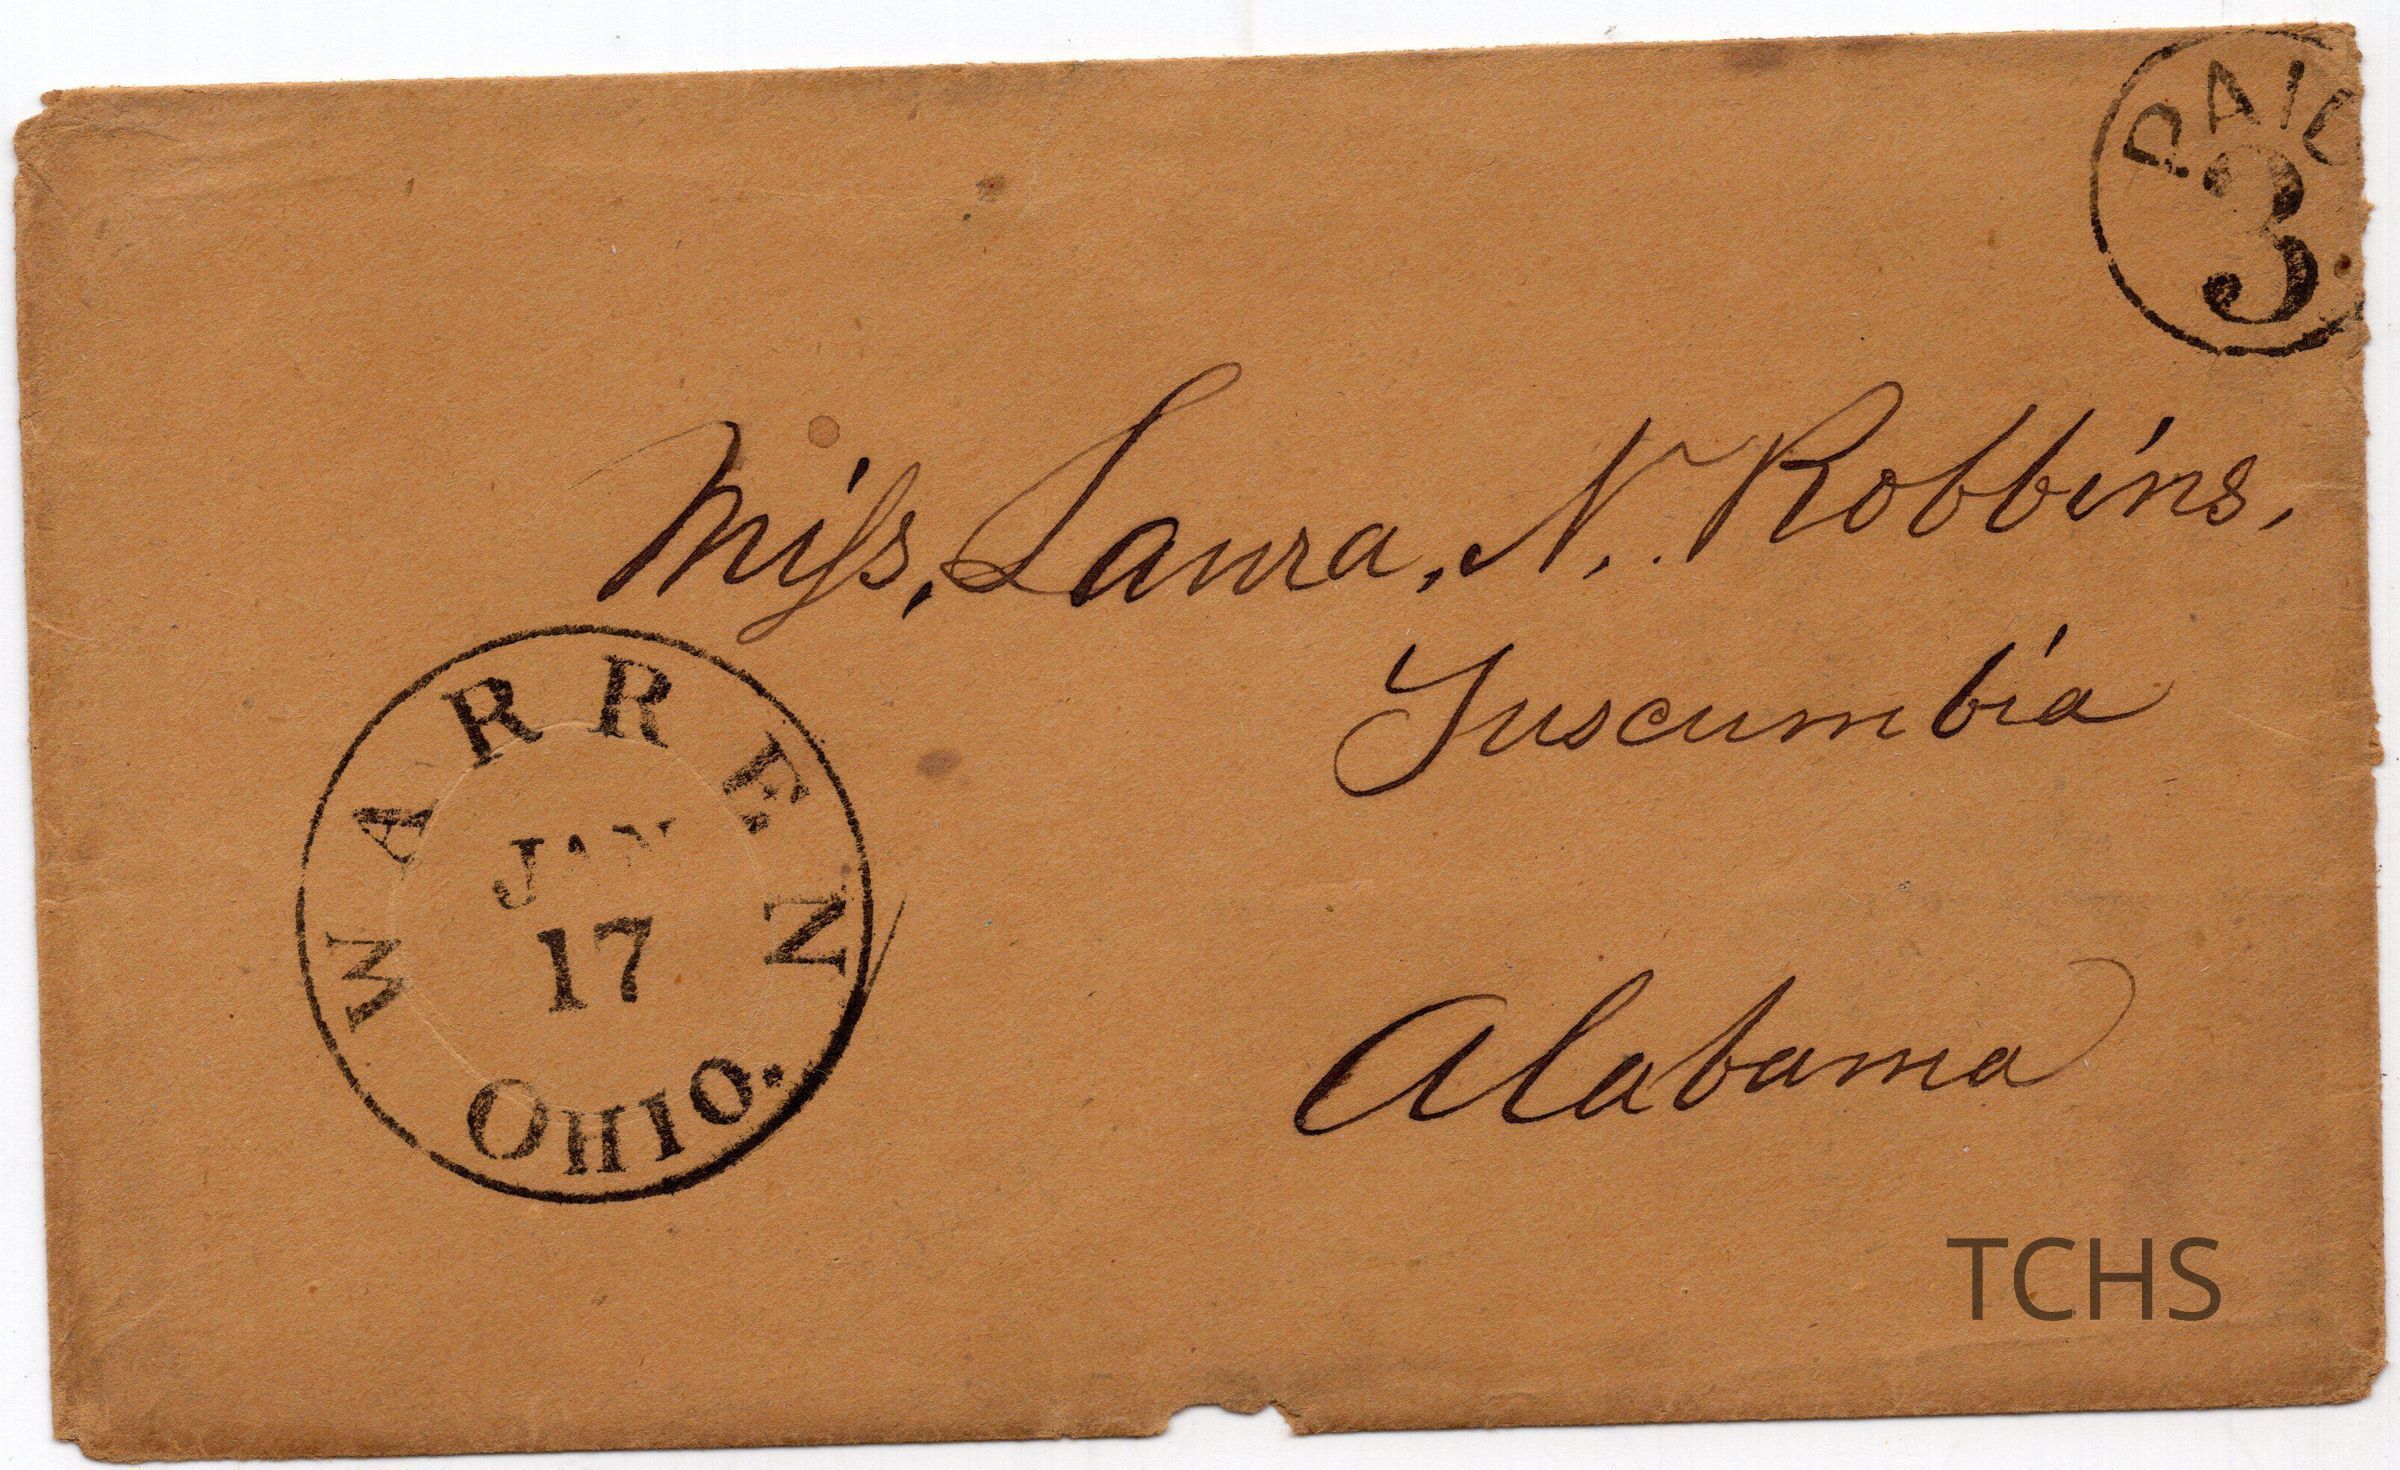 PAID
3
Miss, Laura, N. Robbins,
Tuscumbia
Alabama
WARREN
JAN
17
OHIO.
TCHS